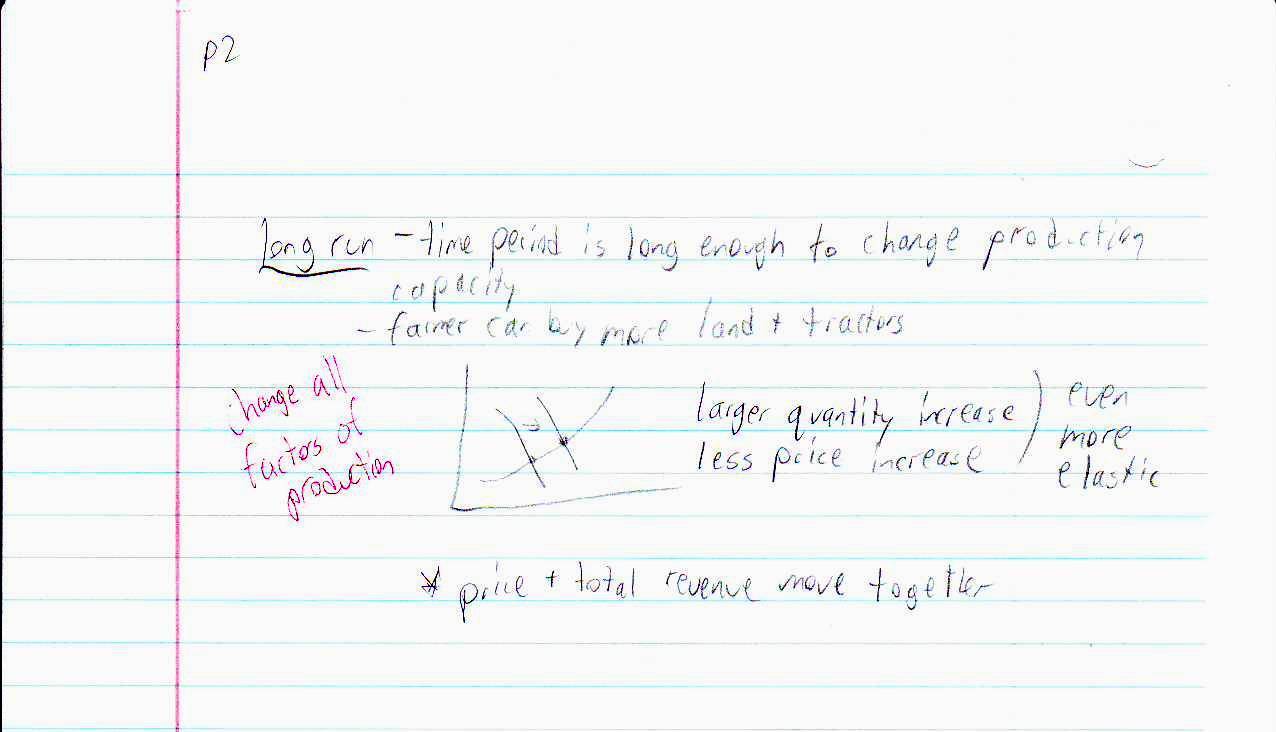 p2
Long run - time period is long enough to change production
capacity
- farmer can buy more land + tractors
change all
factors of
production
larger quantity increase
less price increase
even
more
elastic
* price + total revenue move together